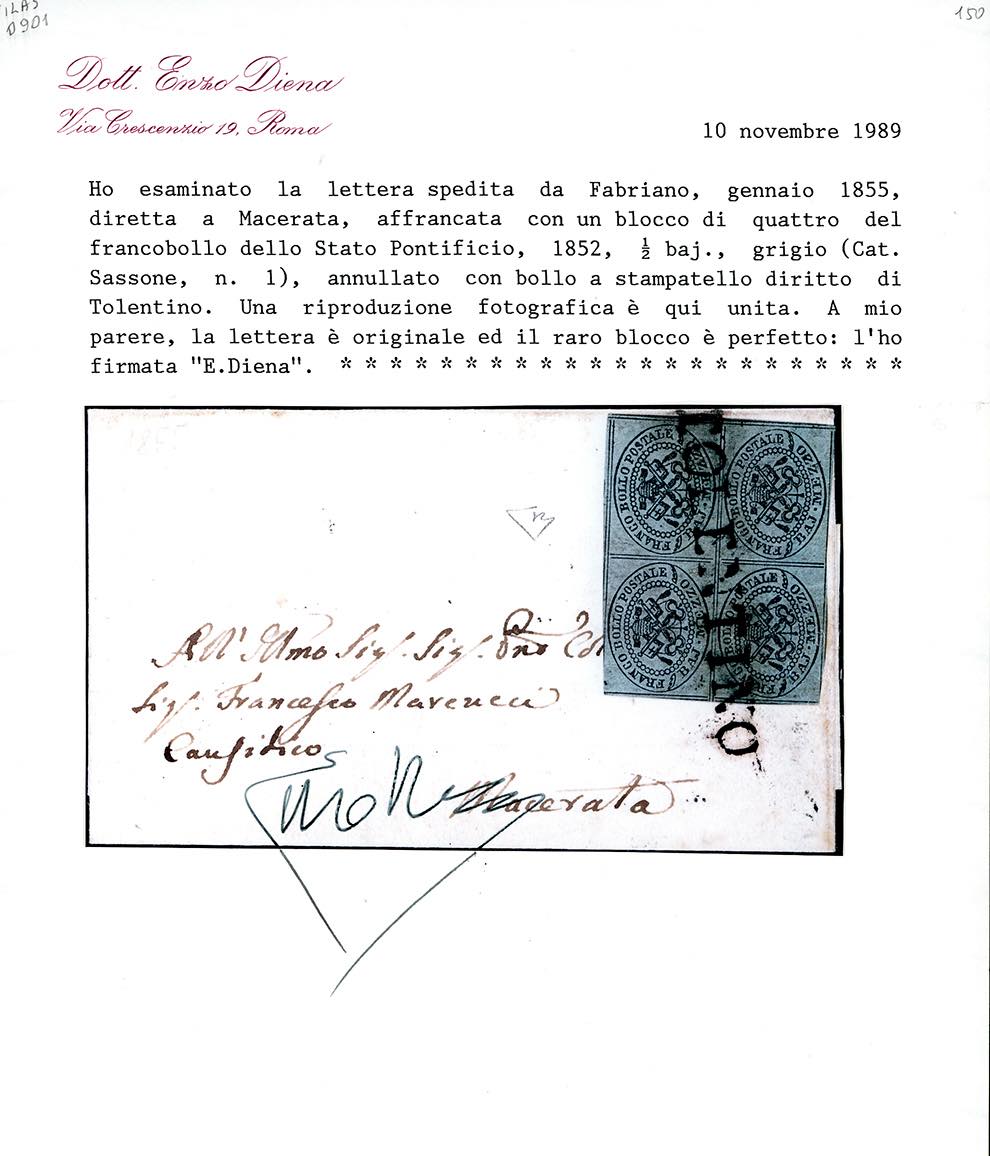 0901
150
Dott. Enzo Diena
Via Crescenzio 19, Roma
10 novembre 1989
Ho esaminato la lettera spedita da Fabriano, gennaio 1855,
diretta a Macerata, affrancata con un blocco di quattro del
francobollo dello Stato Pontificio, 1852, ½ baj., grigio (Cat.
Sassone, n. 1), annullato con bollo a stampatello diritto di
Tolentino. Una riproduzione fotografica è qui unita. A mio
parere, la lettera è originale ed il raro blocco è perfetto: l'ho
firmata "E.Diena". * * * * * * * * * * * * * * * * * * * * * * *
FRANCO BOLLO POSTALE
MEZZO BAJ
FRANCO BOLLO POSTALE
MEZZO BAJ
FRANCO BOLLO POSTALE
MEZZO BAJ
FRANCO BOLLO POSTALE
MEZZO BAJ
TOLENTINO
All' Illmo Sigr. Sigr. Pne
Sigr. Francesco Marcucci
Causidico
Macerata